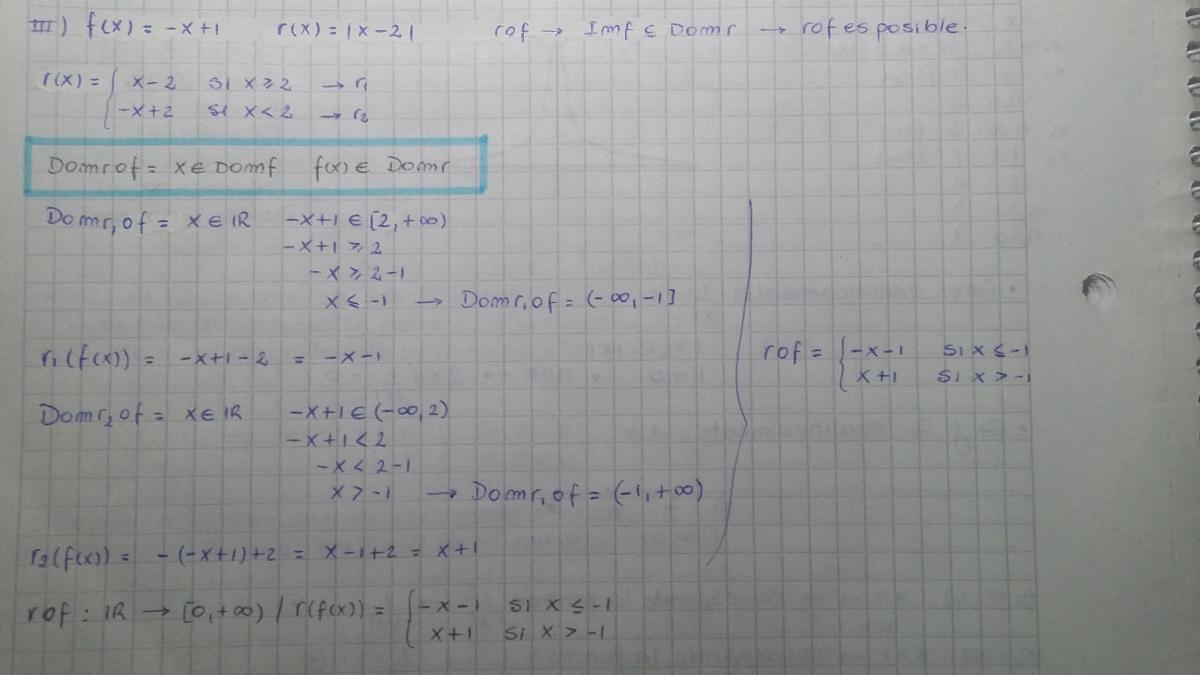 III) f(x) = -x+1 r(x) = |x-2| rof → Imf ⊆ Domr → rof es posible.
r(x) = { x-2 si x ≥ 2 → r₁
-x+2 si x < 2 → r₂
Domrof = x ∈ Domf f(x) ∈ Domr
Domr₁of = x ∈ IR -x+1 ∈ [2,+∞)
-x+1 ≥ 2
-x ≥ 2-1
x ≤ -1 → Domr₁of = (-∞,-1]
r₁(f(x)) = -x+1-2 = -x-1
Domr₂of = x ∈ IR -x+1 ∈ (-∞,2)
-x+1 < 2
-x < 2-1
x > -1 → Domr₁of = (-1,+∞)
r₂(f(x)) = -(-x+1)+2 = x-1+2 = x+1
rof : IR → [0,+∞) / r(f(x)) = { -x-1 si x ≤ -1
x+1 si x > -1
rof = { -x-1 si x ≤ -1
x+1 si x > -1